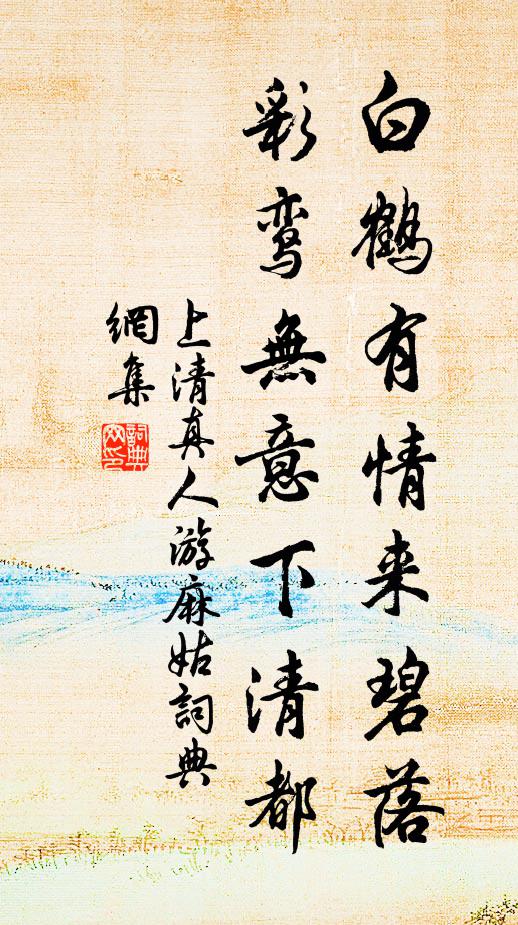 白鹤有情来碧落
彩鸾無意下清都
上清真人游麻姑詞典
網集
詞典